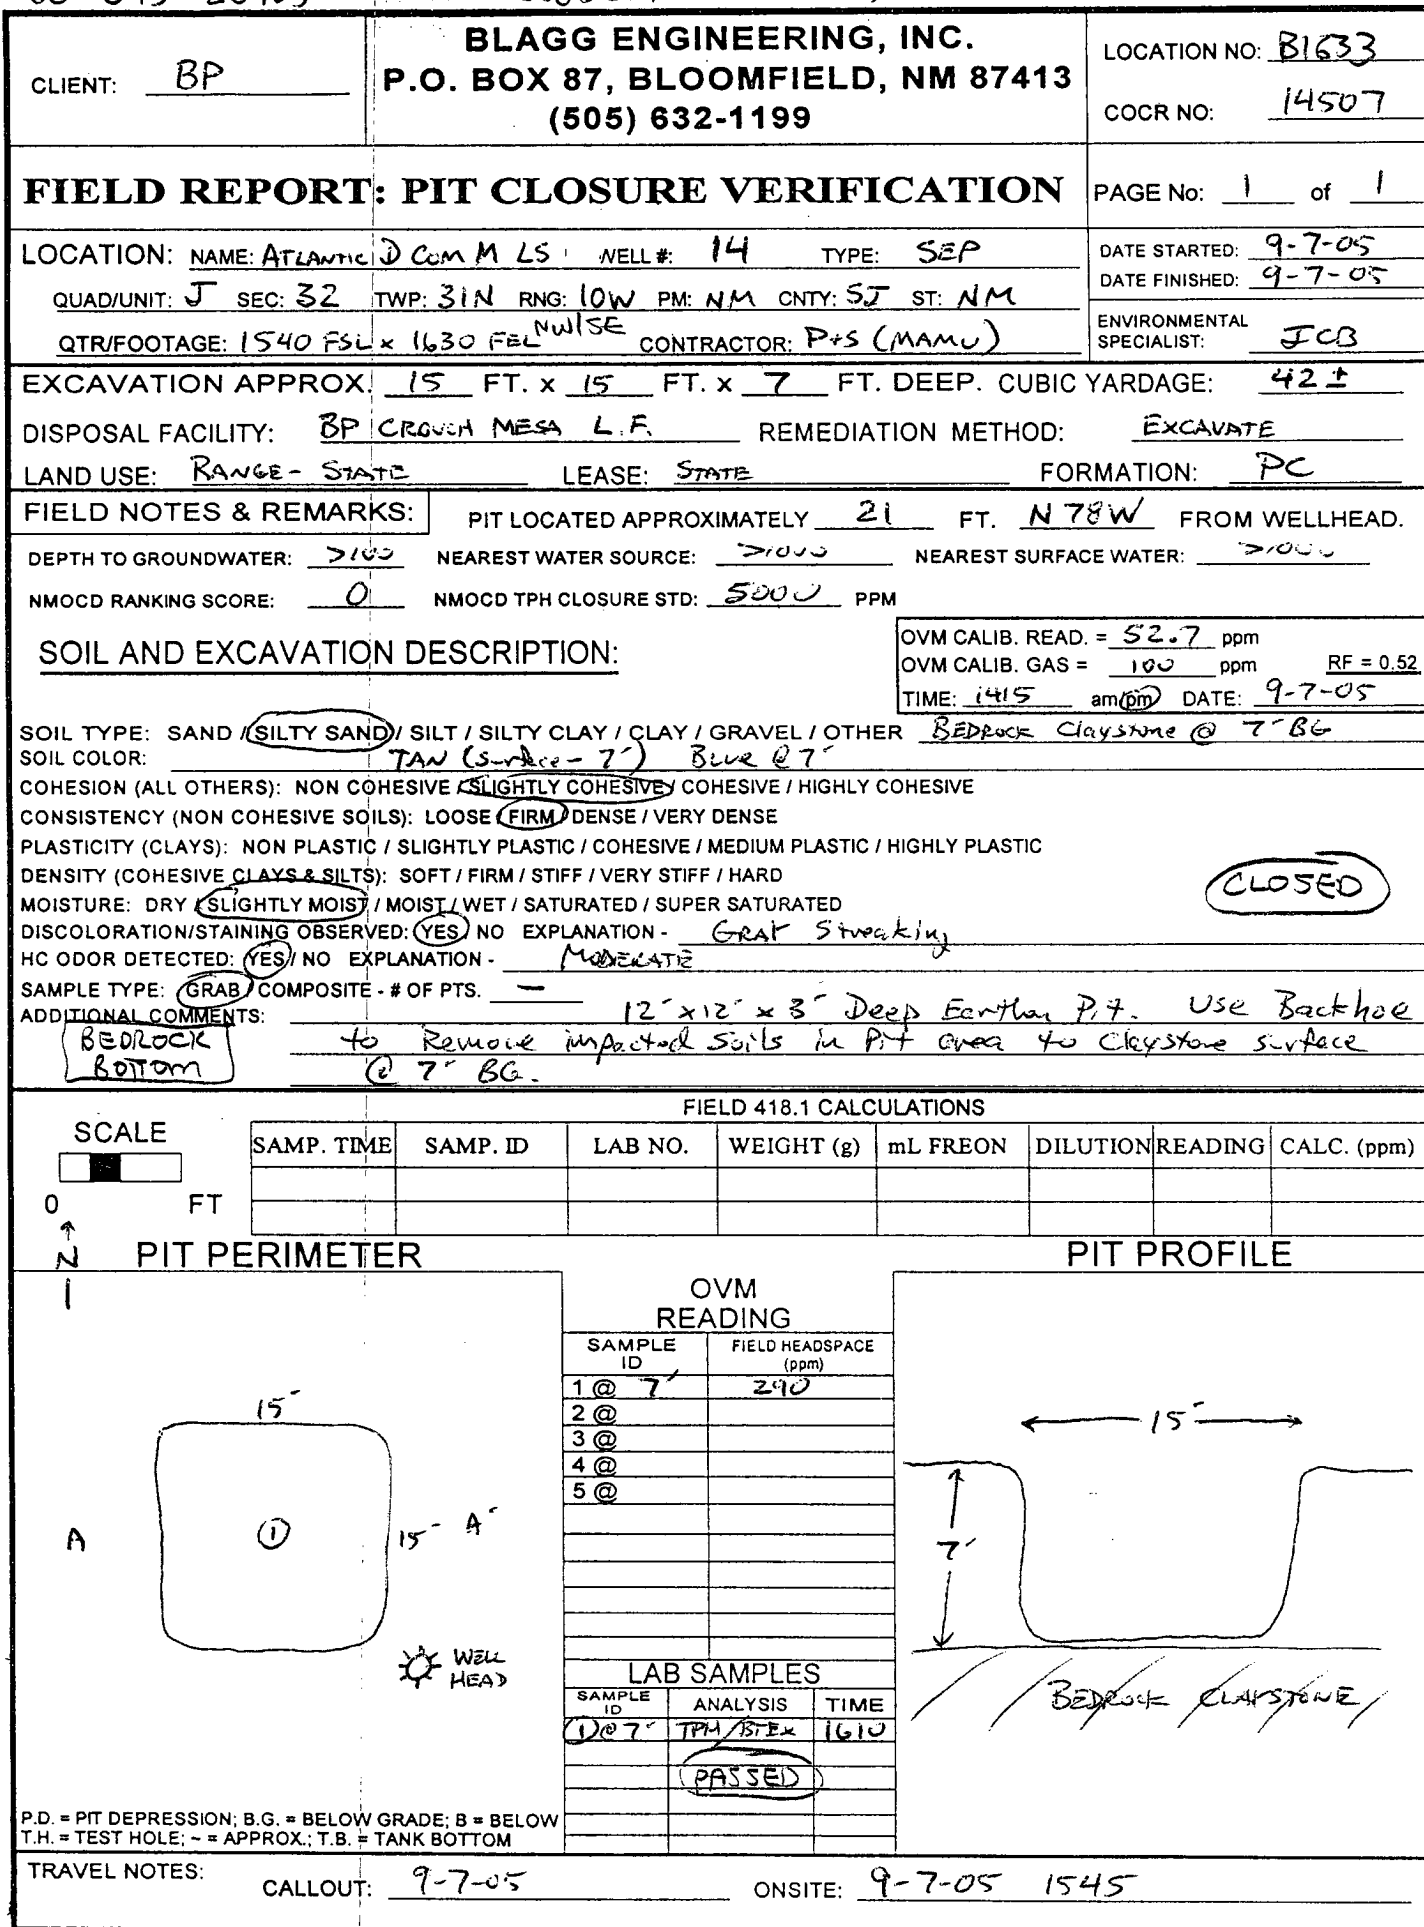 BLAGG ENGINEERING, INC.
P.O. BOX 87, BLOOMFIELD, NM 87413
(505) 632-1199
CLIENT: BP
LOCATION NO: B1633
COCR NO: 14507
FIELD REPORT: PIT CLOSURE VERIFICATION
PAGE No: 1 of 1
LOCATION: NAME: ATLANTIC D COM M LS WELL #: 14 TYPE: SEP
DATE STARTED: 9-7-05
DATE FINISHED: 9-7-05
QUAD/UNIT: J SEC: 32 TWP: 31N RNG: 10W PM: NM CNTY: SJ ST: NM
QTR/FOOTAGE: 1540 FSL x 1630 FEL NW/SE CONTRACTOR: P+S (MAMU)
ENVIRONMENTAL
SPECIALIST: JCB
EXCAVATION APPROX. 15 FT. x 15 FT. x 7 FT. DEEP. CUBIC YARDAGE: 42 ±
DISPOSAL FACILITY: BP CROUCH MESA L.F. REMEDIATION METHOD: EXCAVATE
LAND USE: RANGE - STATE LEASE: STATE FORMATION: PC
FIELD NOTES & REMARKS: PIT LOCATED APPROXIMATELY 21 FT. N 78 W FROM WELLHEAD.
DEPTH TO GROUNDWATER: >100 NEAREST WATER SOURCE: >1000 NEAREST SURFACE WATER: >1000
NMOCD RANKING SCORE: 0 NMOCD TPH CLOSURE STD: 5000 PPM
SOIL AND EXCAVATION DESCRIPTION:
OVM CALIB. READ. = 52.7 ppm
OVM CALIB. GAS = 100 ppm RF = 0.52
TIME: 1415 am/pm DATE: 9-7-05
SOIL TYPE: SAND / SILTY SAND / SILT / SILTY CLAY / CLAY / GRAVEL / OTHER BEDROCK Claystone @ 7' BG
SOIL COLOR: TAN (Surface - 7') BLUE @ 7'
COHESION (ALL OTHERS): NON COHESIVE / SLIGHTLY COHESIVE / COHESIVE / HIGHLY COHESIVE
CONSISTENCY (NON COHESIVE SOILS): LOOSE / FIRM / DENSE / VERY DENSE
PLASTICITY (CLAYS): NON PLASTIC / SLIGHTLY PLASTIC / COHESIVE / MEDIUM PLASTIC / HIGHLY PLASTIC
DENSITY (COHESIVE CLAYS & SILTS): SOFT / FIRM / STIFF / VERY STIFF / HARD
CLOSED
MOISTURE: DRY / SLIGHTLY MOIST / MOIST / WET / SATURATED / SUPER SATURATED
DISCOLORATION/STAINING OBSERVED: YES / NO EXPLANATION - GRAY Streaking
HC ODOR DETECTED: YES / NO EXPLANATION - MODERATE
SAMPLE TYPE: GRAB / COMPOSITE - # OF PTS. —
ADDITIONAL COMMENTS: 12' x 12' x 3' Deep Earthen Pit. Use Backhoe
to Remove impacted Soils in Pit area to Claystone surface
@ 7' BG.
BEDROCK
BOTTOM
FIELD 418.1 CALCULATIONS
SCALE
0 FT
SAMP. TIME SAMP. ID LAB NO. WEIGHT (g) mL FREON DILUTION READING CALC. (ppm)
N
PIT PERIMETER
PIT PROFILE
OVM
READING
SAMPLE ID FIELD HEADSPACE (ppm)
1 @ 7' 290
2 @
3 @
4 @
5 @
15'
A
1
15'
A'
WELL
HEAD
15'
7'
BEDROCK CLAYSTONE
LAB SAMPLES
SAMPLE ID ANALYSIS TIME
1 @ 7' TPH/BTEX 1610
PASSED
P.D. = PIT DEPRESSION; B.G. = BELOW GRADE; B = BELOW
T.H. = TEST HOLE; ~ = APPROX.; T.B. = TANK BOTTOM
TRAVEL NOTES: CALLOUT: 9-7-05 ONSITE: 9-7-05 1545